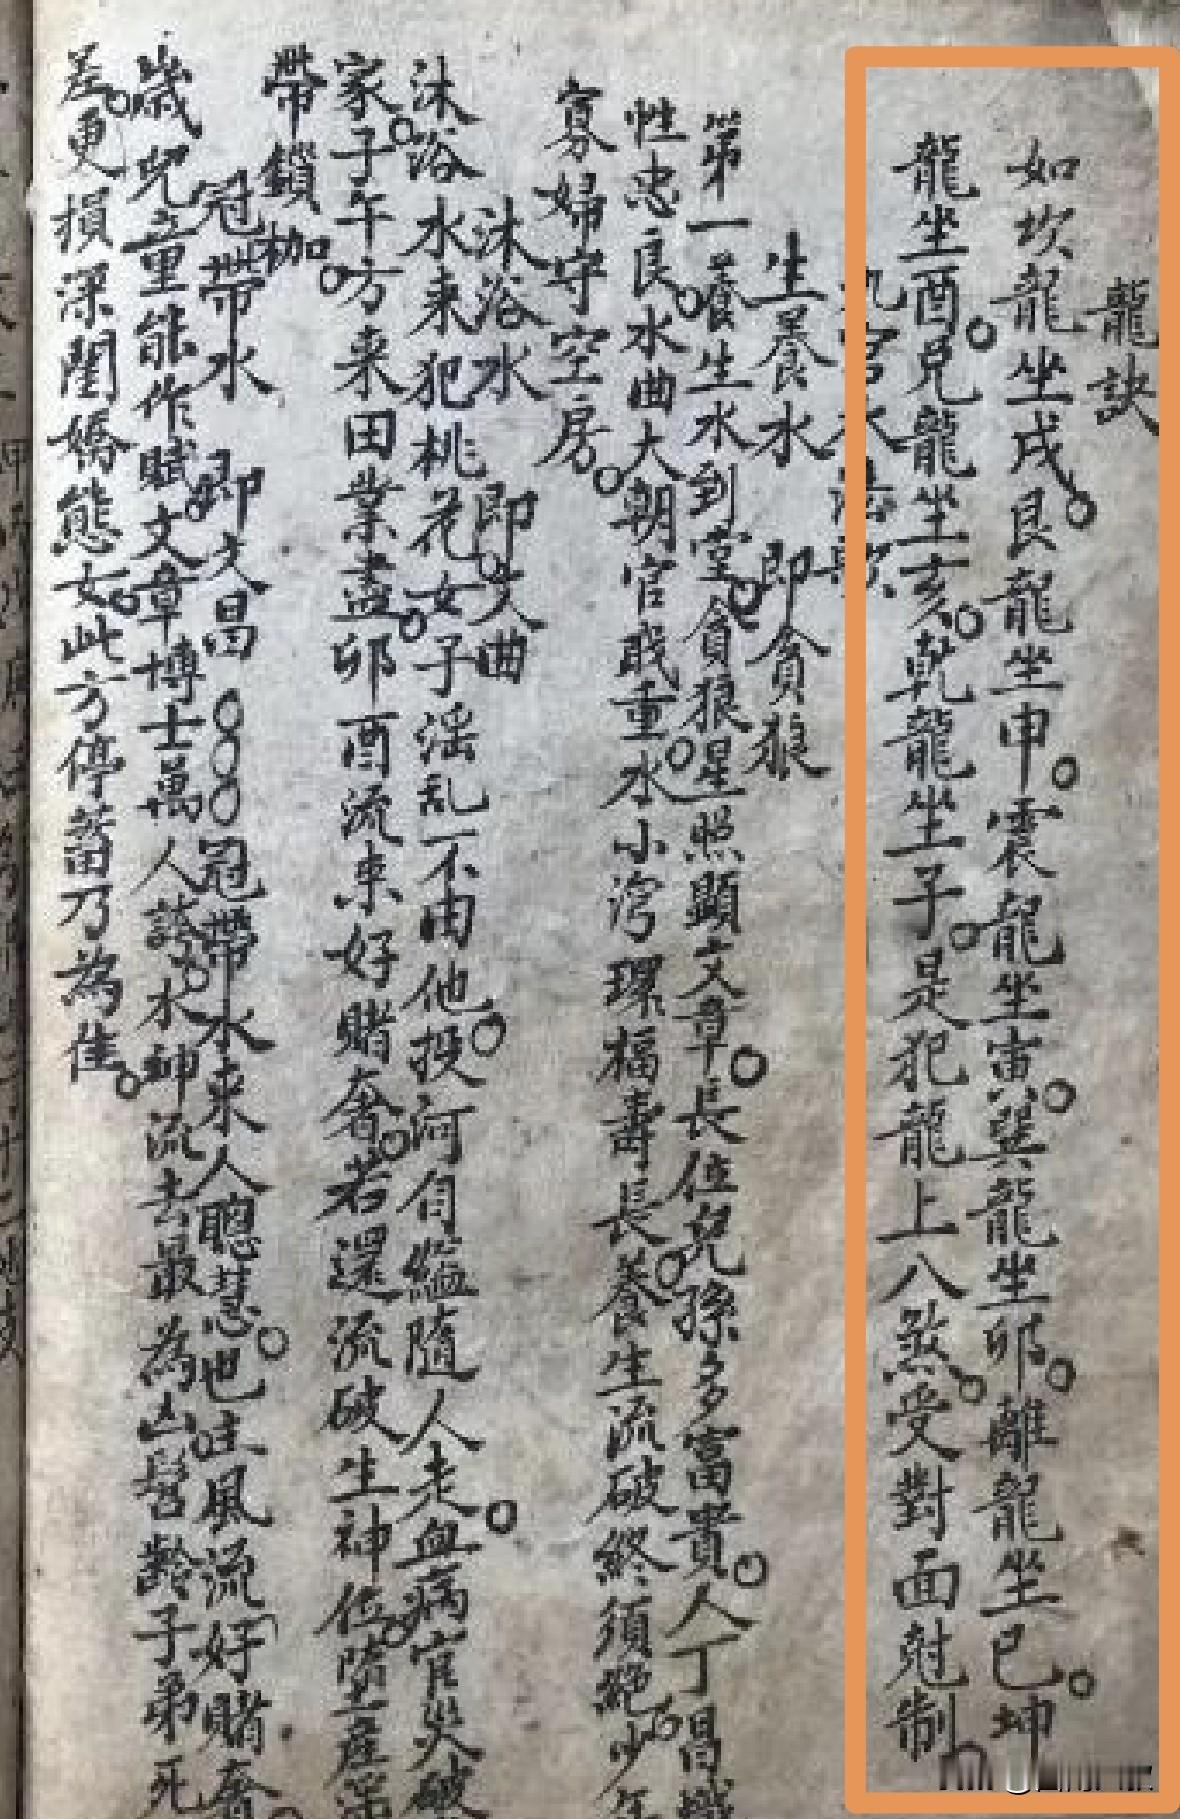 龍訣
如坎龍坐戌。艮龍坐申。震龍坐寅。巽龍坐卯。離龍坐巳。坤
龍坐酉。兌龍坐亥。乾龍坐子。是犯龍上八煞。受對面尅制
九宮水法歌
生養水 即貪狼
第一養生水到堂。貪狼星照顯文章。長位兒孫多富貴。人丁昌熾
性忠良。水曲大朝官職重。水小灣環福壽長。養生流破終須絕。少年
寡婦守空房。
沐浴水 即文曲
沐浴水來犯桃花。女子淫乱不由他。投河自縊隨人走。血病官災破
家。子午方来田業盡。卯酉流来好賭奢。若還流破生神位。墮産淫
帶鎖枷。
冠帶水 即文昌 〇〇〇冠帶水来人聰慧。也主風流好賭奢。
歲兒童能作賦。文章博士萬人誇。水神流去最為凶。髫齡子弟死
差。更損深閨嬌態女。此方停蓄乃為佳。